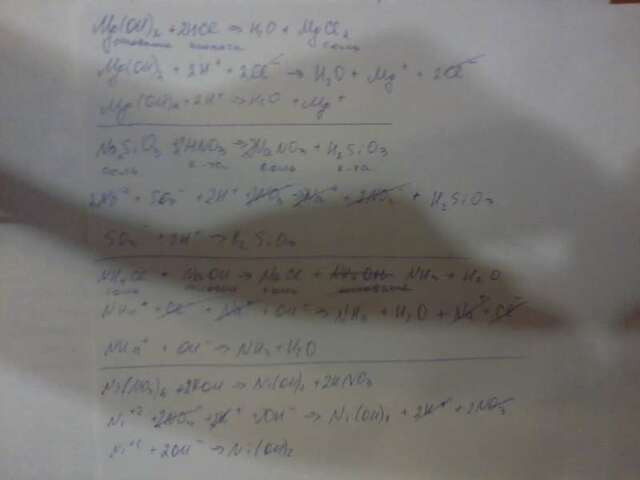 Mg(OH)₂ + 2HCl → H₂O + MgCl₂
основание кислота соль
Mg(OH)₂ + 2H⁺ + 2Cl⁻ → H₂O + Mg⁺ + 2Cl⁻
Mg(OH)₂ + 2H⁺ → H₂O + Mg⁺
Na₂SiO₃ 2HNO₃ → 2NaNO₃ + H₂SiO₃
соль к-та соль к-та
2Na⁺ + + 2H⁺ + H₂SiO₃
+ 2H⁺ → H₂SiO₃
NH₄Cl + NaOH → NaCl + NH₄OH NH₃ + H₂O
соль соль основание
NH₄⁺ + Cl⁻ + Na⁺ + OH⁻ → NH₃ + H₂O + Na⁺ + Cl⁻
NH₄⁺ + OH⁻ → NH₃ + H₂O
Ni(NO₃)₂ + → Ni(OH)₂ +
Ni⁺² + 2OH⁻ → Ni(OH)₂ + + 2NO₃⁻
Ni⁺² + 2OH⁻ → Ni(OH)₂